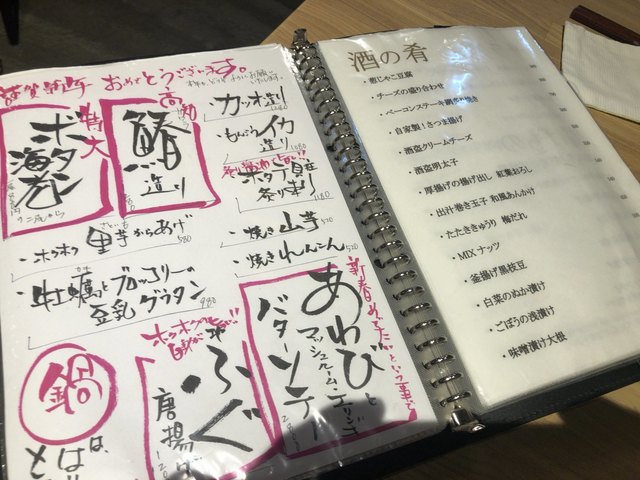 謹賀新年 おめでとうございます。
特大
ボタン
海老
高知
鰆
造り
カツオ造り
もんごうイカ
造り 1080
ホタテ貝柱
炙り造り 1180
・ホクホク 里芋からあげ 580
・焼き山芋 520
・焼きれんこん 520
・牡蠣とブロッコリーの
豆乳グラタン 980
新春
あわびと
マッシュルーム・エリンギ
バターソテー
ふぐ
唐揚げ
鍋
は、
酒の肴
・梅じゃこ豆腐
・チーズの盛り合わせ
・自家製!さつま揚げ
・酒盗クリームチーズ
・酒盗明太子
・厚揚げの揚げ出し 紅葉おろし
・出汁巻き玉子 和風あんかけ
・たたききゅうり 梅だれ
・MIXナッツ
・釜揚げ黒枝豆
・白菜のぬか漬け
・ごぼうの浅漬け
・味噌漬け大根